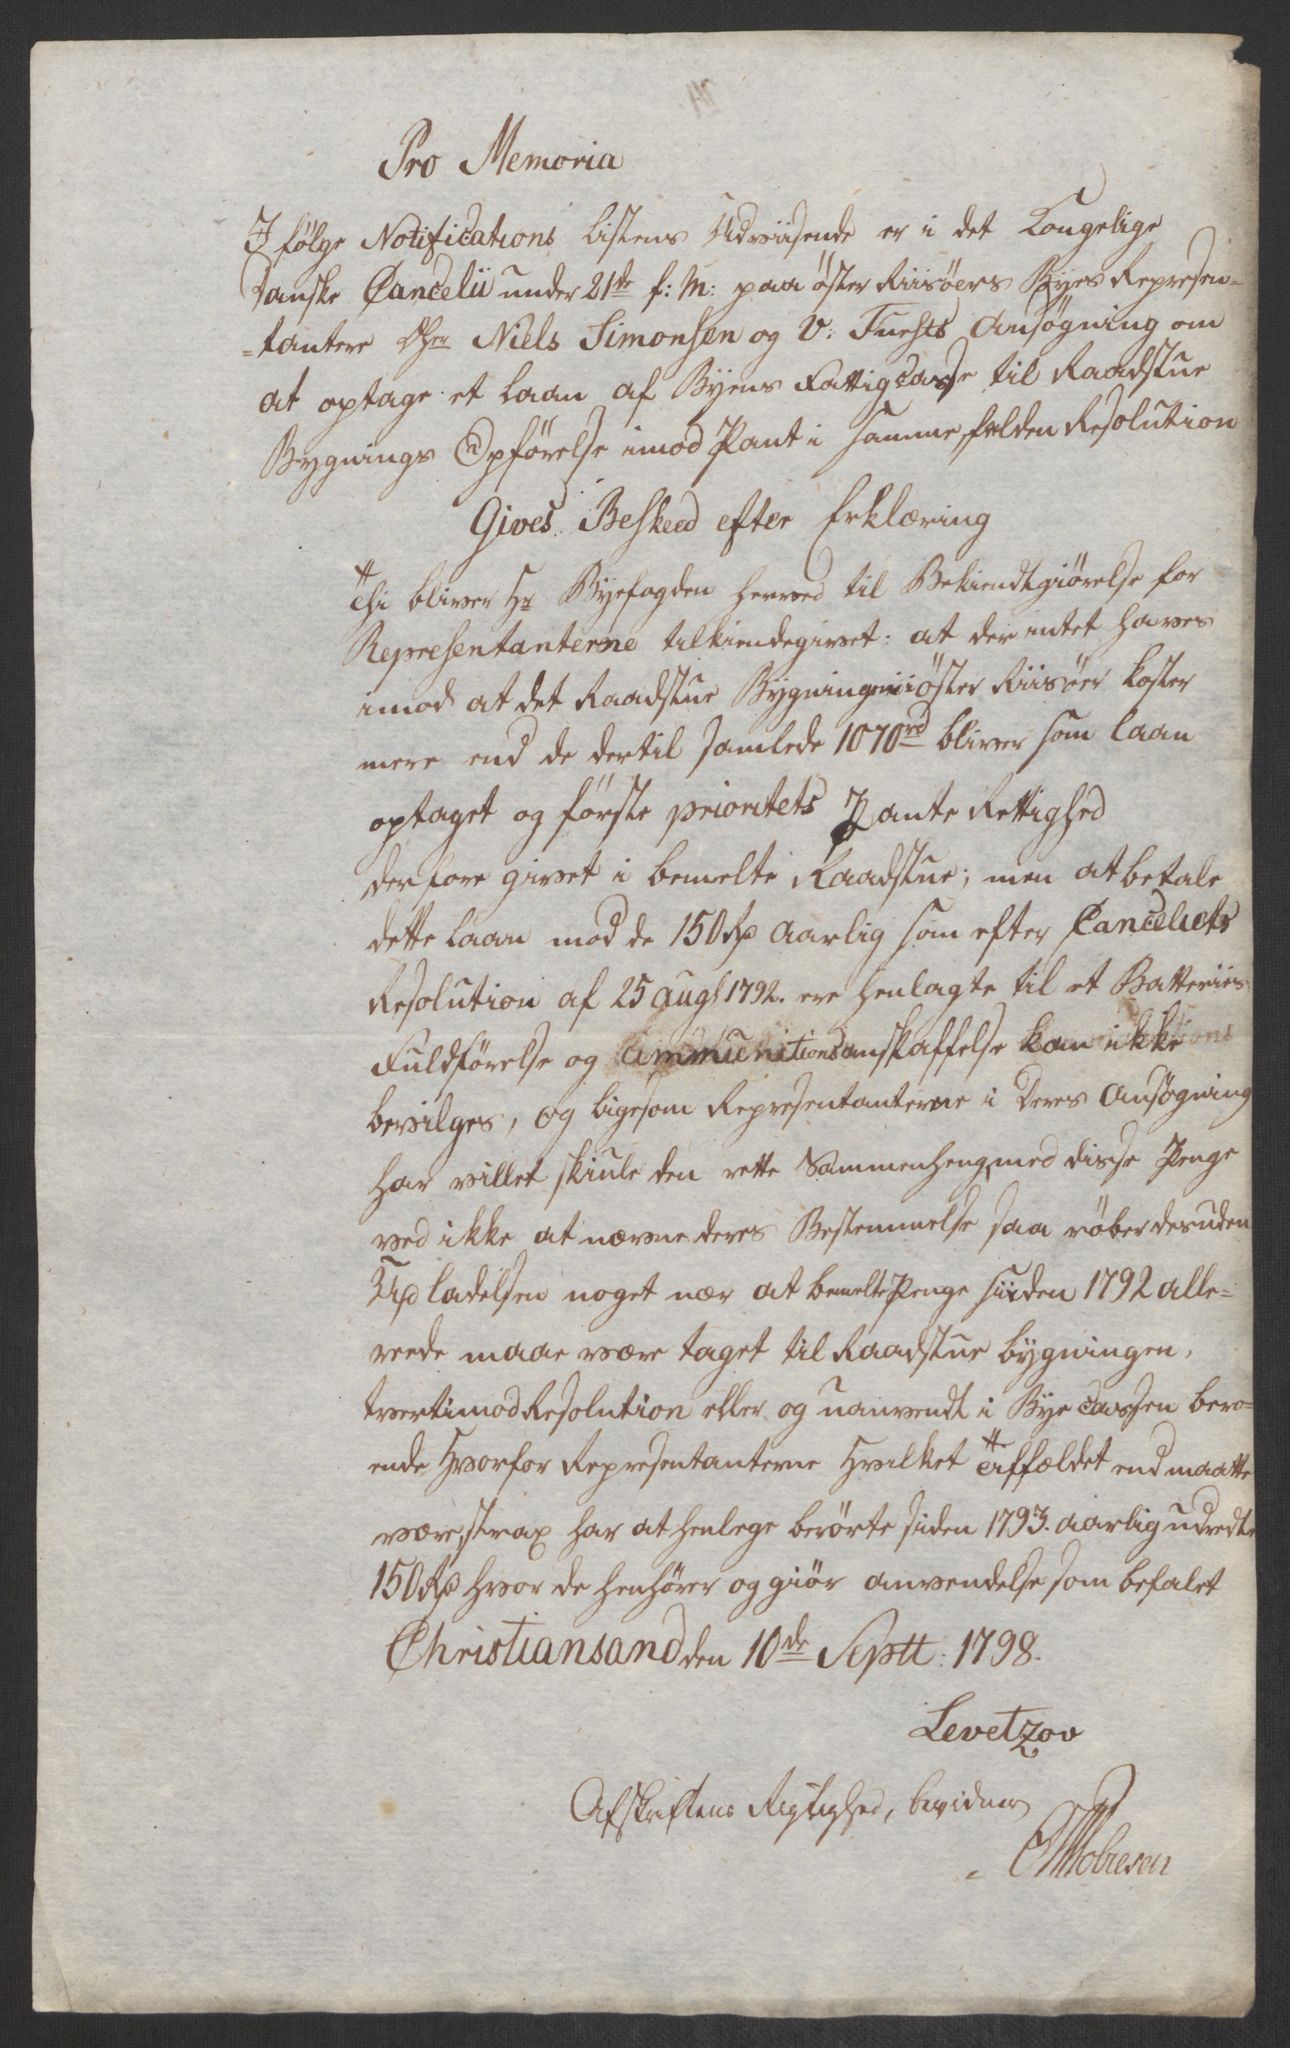 Pro Memoria
I følge Notifications Listens Udviisende er i det Kongelige
Danske Cancelii under 21de f: M: paa Øster Riisøers Byes Represen-
-tantere Niels Simonsen og V: Fuehts Ansøgning om
at optage et Laan af Byens Fattigcasse til Raadstue
Bygnings Opførelse imod Pant i samme, falden Resolution
Gives Beskeed efter Erklæring
Thi bliver Hr Byefogden herved til Bekiendtgiørelse for
Representanterne tilkiendegivet: at der intet haves
imod at det Raadstue Bygningen i Øster Riisøer koster
mere end de dertil samlede 1070rd bliver som Laan
optaget og første prioritets Pante Rettighed
derfore givet i bemelte Raadstue; men at betale
dette Laan med de 150 Rd aarlig som efter Canceliets
Resolution af 25 Augt 1792. ere henlagte til et Batteries
Fuldførelse og Ammunitions anskaffelse kan ikke
bevilges, og ligesom Representanterne i Deres Ansøgning
har villet skiule den rette Sammenheng med disse Penge
ved ikke at nævne deres Bestemmelse saa røber desuden
Udladelsen noget nær at bemelte Penge siiden 1792 alle-
rede maae være taget til Raadstue bygningen,
tvertimod Resolution eller og uanvendt i Bye Cassen bero-
ende Hvorfor Representanterne Hvilket af fældet end maatte
være, strax har at henlege berørte siden 1793. aarlig udredte
150 Rd hvor de henhører og giør anvendelse som befalet
Christiansand den 10de Septt: 1798.
Levetzov
Afskriftens Rigtighed, bevidner